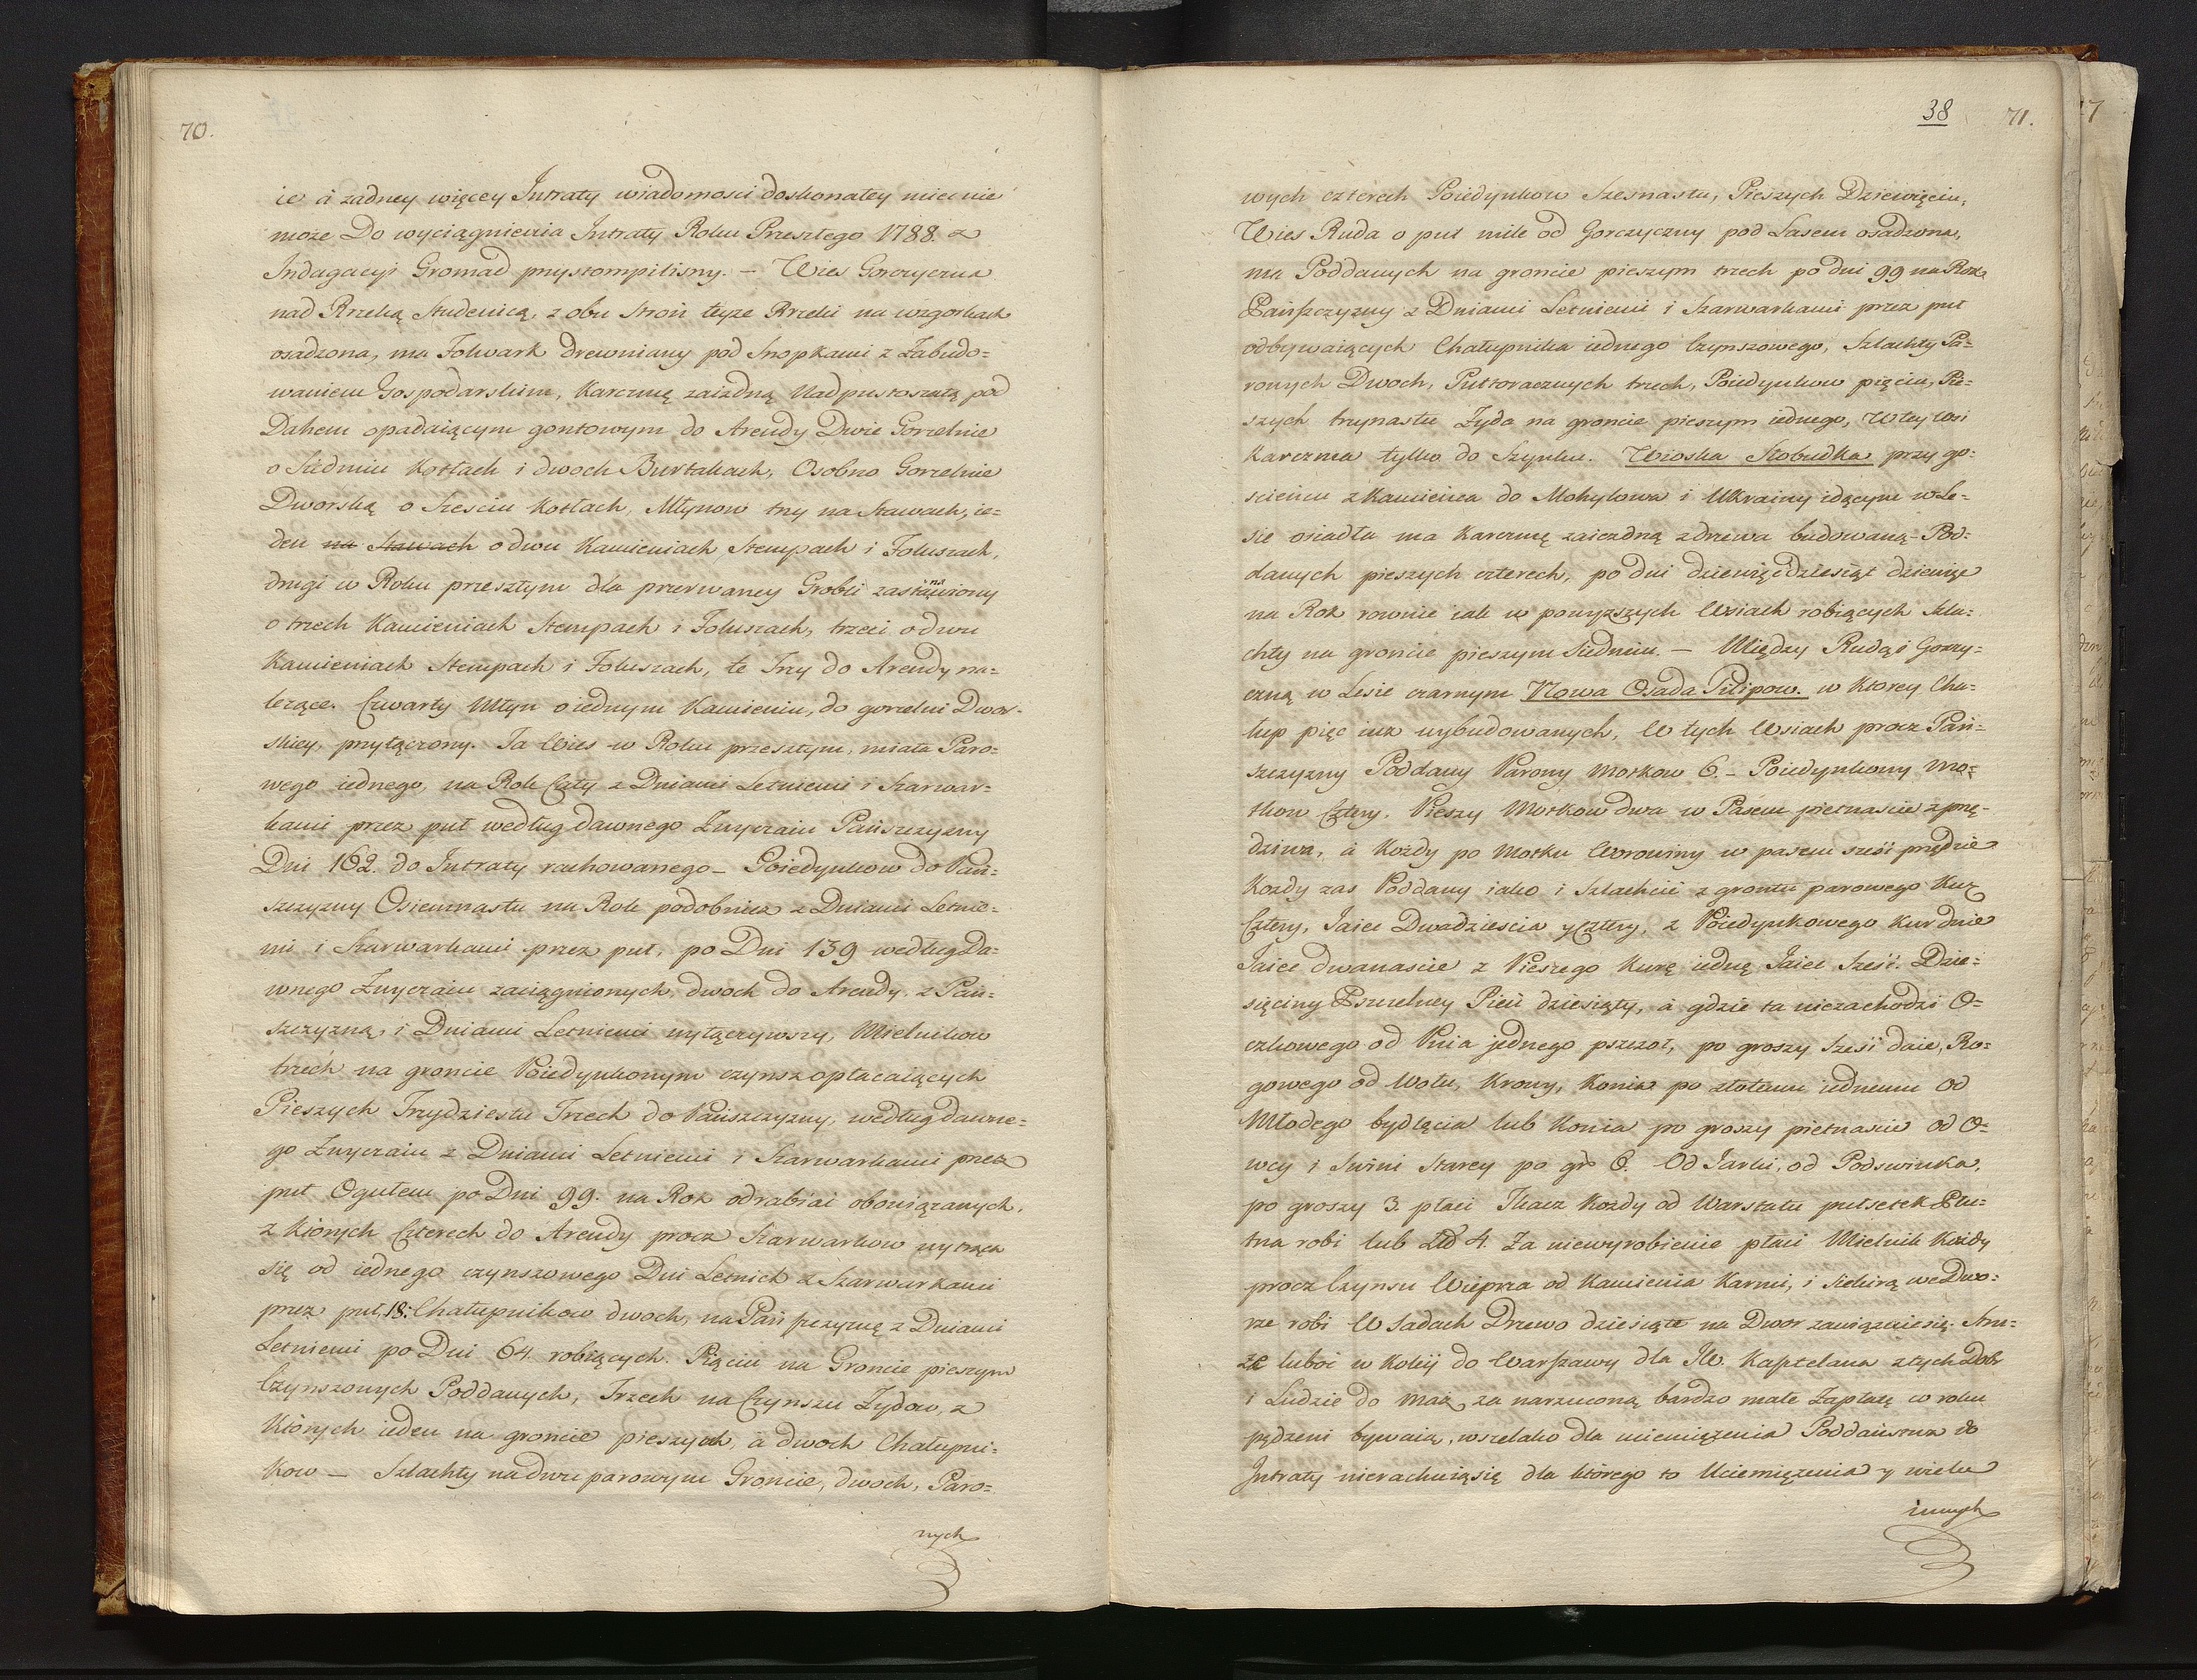 70.
ie á zadney więcey Intraty wiadomosci doskonałey miec nie
może Do wyciągnienia Intraty Roku Przeszłego 1788. z
Indagacyi Gromad przystompilismy. – Wies Gorczyczna
nad Rzeką Studenicą, z obu stron teyze Rzeki na wzgorkach
osadzona, ma Folwark drewniany pod Snopkami z Zabudo=
waniem Gospodarskim, Karczmę zaiezdną Nadpustoszałą pod
Dahem opadaiącym gontowym do Arendy Dwie Gorzelnie
o Siedmiu Kotłach i dwoch Burtakach, Osobno Gorzelnie
Dworską o Szesciu Kotłach, Młynow trzy na Stawach, ie=
den na Stawach o dwu Kamieniach Stempach i Foluszach,
drugi w Roku przeszłym dla przerwaney Grobli zastanowiony
o trzech Kamieniach Stempach i Foluszach, trzeci o dwu
Kamieniach Stempach i Foluszach, te Trzy do Arendy na=
lezące. Czwarty Młyn o iednym Kamieniu, do gorzelni Dwor=
skiey, przyłączony. Ta Wies w Roku przeszłym, miała Paro=
wego iednego, na Rok Cały z Dniami Letniemi i Szarwar=
kami przez puł według dawnego Zwyczaiu Pańszczyzny
Dni 162. do Intraty rachowanego – Poiedynkow do Pań=
szczyzny Osiemnastu na Rok podobniez z Dniami Letnie=
mi i Szarwarkami przez puł, po Dni 139 według Da=
wnego Zwyczaiu zaciągnionych, dwoch do Arendy z Pań=
szczyzną, i Dniami Letniemi wyłączywszy, Mielnikow
trzech na groncie Poiedynkowym czynsz opłacaiących
Pieszych Trzydziestu Trzech do Pańszczyzny, według dawne=
go Zwyczaiu z Dniami Letniemi i Szarwarkami przez
puł Ogułem po Dni 99. na Rok odrabiać obowiązanych,
z których Czterech do Arendy procz Szarwarkow wytrąca
się od iednego czynszowego Dni Letnich z Szarwarkami
przez puł, 18: Chałupnikow dwoch, na Pańszczyznę z Dniami
Letniemi po Dni 64. robiących. Pięciu na Groncie pieszym
Czynszowych Poddanych, Trzech na Czynszu Zydow, z
których ieden na groncie pieszych, á dwoch Chałupni=
kow – Szlachty na dwu parowym Groncie, dwoch, Paro=
wych
38 71.
wych czterech Poiedynkow Szesnastu, Pieszych Dziewięciu,
Wies Ruda o puł mile od Gorczyczny pod Lasem osadzona,
ma Poddanych na groncie pieszym trzech po dni 99 na Rok
Pańszczyzny z Dniami Letniemi i Szarwarkami przez puł
odbywaiących Chałupnika iednego Czynszowego, Szlachty Pa=
rowych Dwoch, Pułtoracznych trzech, Poiedynkow pięciu, Pie=
szych trzynastu Zyda na groncie pieszym iednego, W tey Wsi
Karczma tylko do Szynku. Wioska Słobudka przy go=
scieńcu z Kamieńca do Mohylowa i Ukrainy idącym w Le=
sie osiadła ma Karczmę zaiezdną z drzewa budowaną – Pod=
danych pieszych czterech, po dni dziewięcdziesiąt dziewięc
na Rok rownie iak w powyzszych Wsiach robiących Szla=
chty na groncie pieszym Siedmiu. – Między Rudą i Gorczy=
czną w Lesie czarnym Nowa Osada Pilipow. w ktorey Cha=
łup pięc iuz wybudowanych, W tych Wsiach procz Pań=
szczyzny Poddany Parowy Motkow 6. – Poiedynkowy Mo=
tkow Cztery. Pieszy Motkow dwa w Pasem pietnascie z przę=
dziwa, á Kozdy po Motku Worowiny w pasem sześć przędzie
Kozdy zas Poddany iako i Szlachcic z grontu parowego Kur
Cztery, Jaiec Dwadziescia y Cztery, z Poiedynkowego Kur dwie
Jaiec dwanascie z Pieszego Kurę iednę Jaiec Sześć. Dzie=
sięciny Pszczelney Pień dziesiąty, á gdzie ta niezachodzi O=
czkowego od Pnia jednego pszczoł, po groszy sześć daie, Ro=
gowego od Wołu, Krowy, Konia po złotemu iednemu od
Młodego bydlęcia lub Konia po groszy pietnascie od O=
wcy i Swini starey po gr 6. Od Jarki, od Podswinka,
po groszy 3. płaci Tkacz Kozdy od Warsztatu pułsetek Płu=
tna robi lub Złł 4. Za niewyrobienie płaci Mielnik Kozdy
procz Czynszu Wieprza od Kamienia Karmi, i siekirą we Dwo=
rze robi W Sadach Drzewo dziesiąte na Dwor zawiązuie się. Stru=
ze luboć w Koley do Warszawy dla JW. Kasztelana z tych Dobr
i Ludzie do maz za narzuconą bardzo małe Zapłatę co roku
pędzeni bywaią, wszelako dla uciemiązenia Poddaństwa do
Intraty nierachuią się dla ktorego to Uciemięzenia y wielu
innych